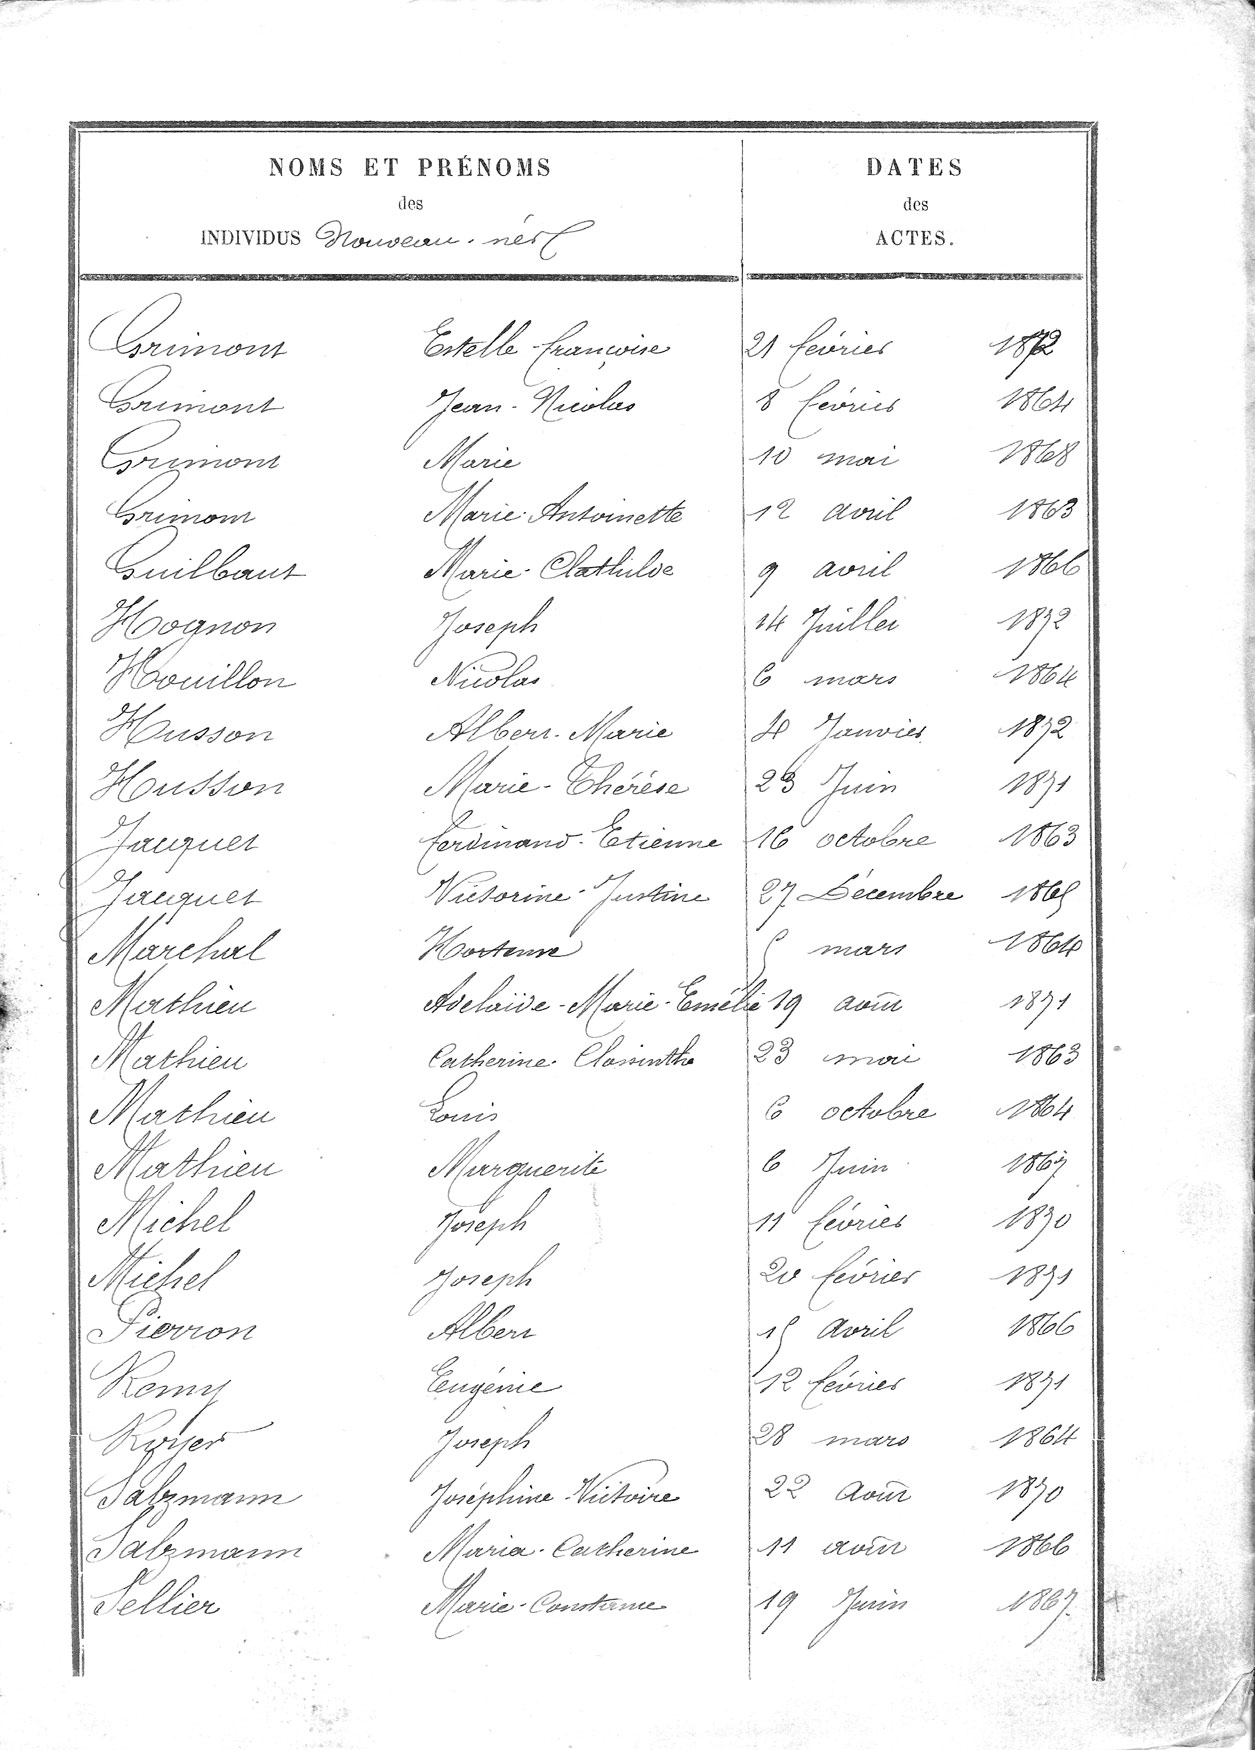 NOMS ET PRÉNOMS
des
INDIVIDUS Nouveau-nés
DATES
des
ACTES.
Grimont Estelle-Françoise 21 février 1872
Grimont Jean-Nicolas 8 février 1864
Grimont Marie 10 mai 1868
Grimont Marie-Antoinette 12 avril 1863
Guilbaut Marie-Clathilde 9 avril 1866
Hognon Joseph 14 Juillet 1872
Houillon Nicolas 6 mars 1864
Husson Albert-Marie 4 Janvier 1872
Husson Marie-Thérése 23 Juin 1871
Jacquet Ferdinand-Etienne 16 octobre 1863
Jacquet Victorine-Justine 27 Décembre 1865
Marchal Hortense 5 mars 1864
Mathieu Adelaïde-Marie-Emélie 19 août 1871
Mathieu Catherine 23 mai 1863
Mathieu Louis 6 octobre 1864
Mathieu Marguerite 6 Juin 1867
Michel Joseph 11 février 1870
Michel Joseph 20 février 1871
Pierron Albert 15 avril 1866
Remy Eugénie 12 février 1871
Royer Joseph 28 mars 1864
Salzmann Joséphine-Victoire 22 Août 1870
Salzmann Maria-Catherine 11 août 1866
Sellier Marie-Constance 19 Juin 1867